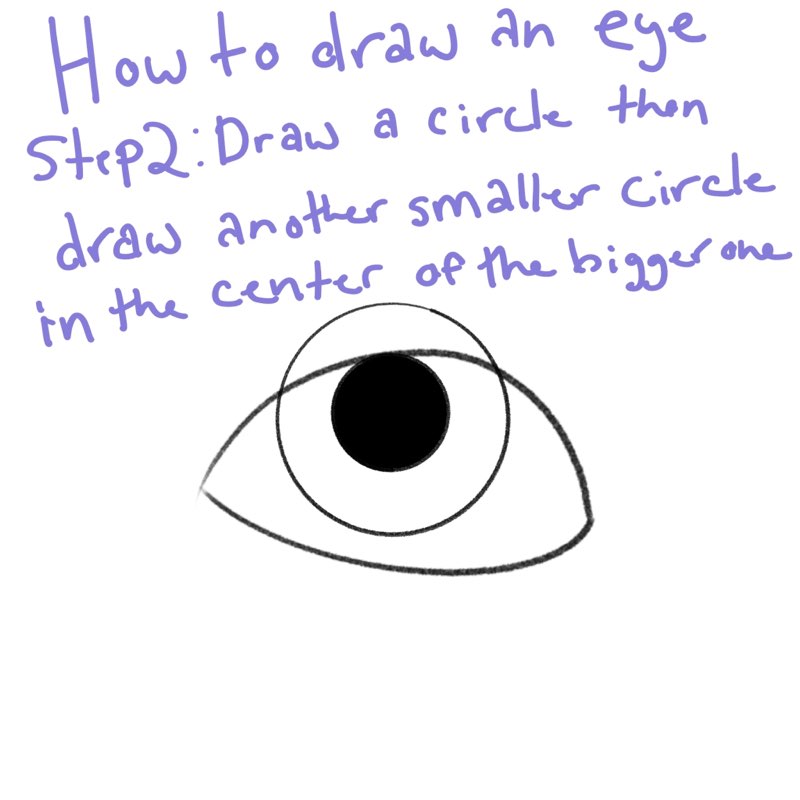 How to draw an eye
Step2: Draw a circle then
draw another smaller circle
in the center of the bigger one